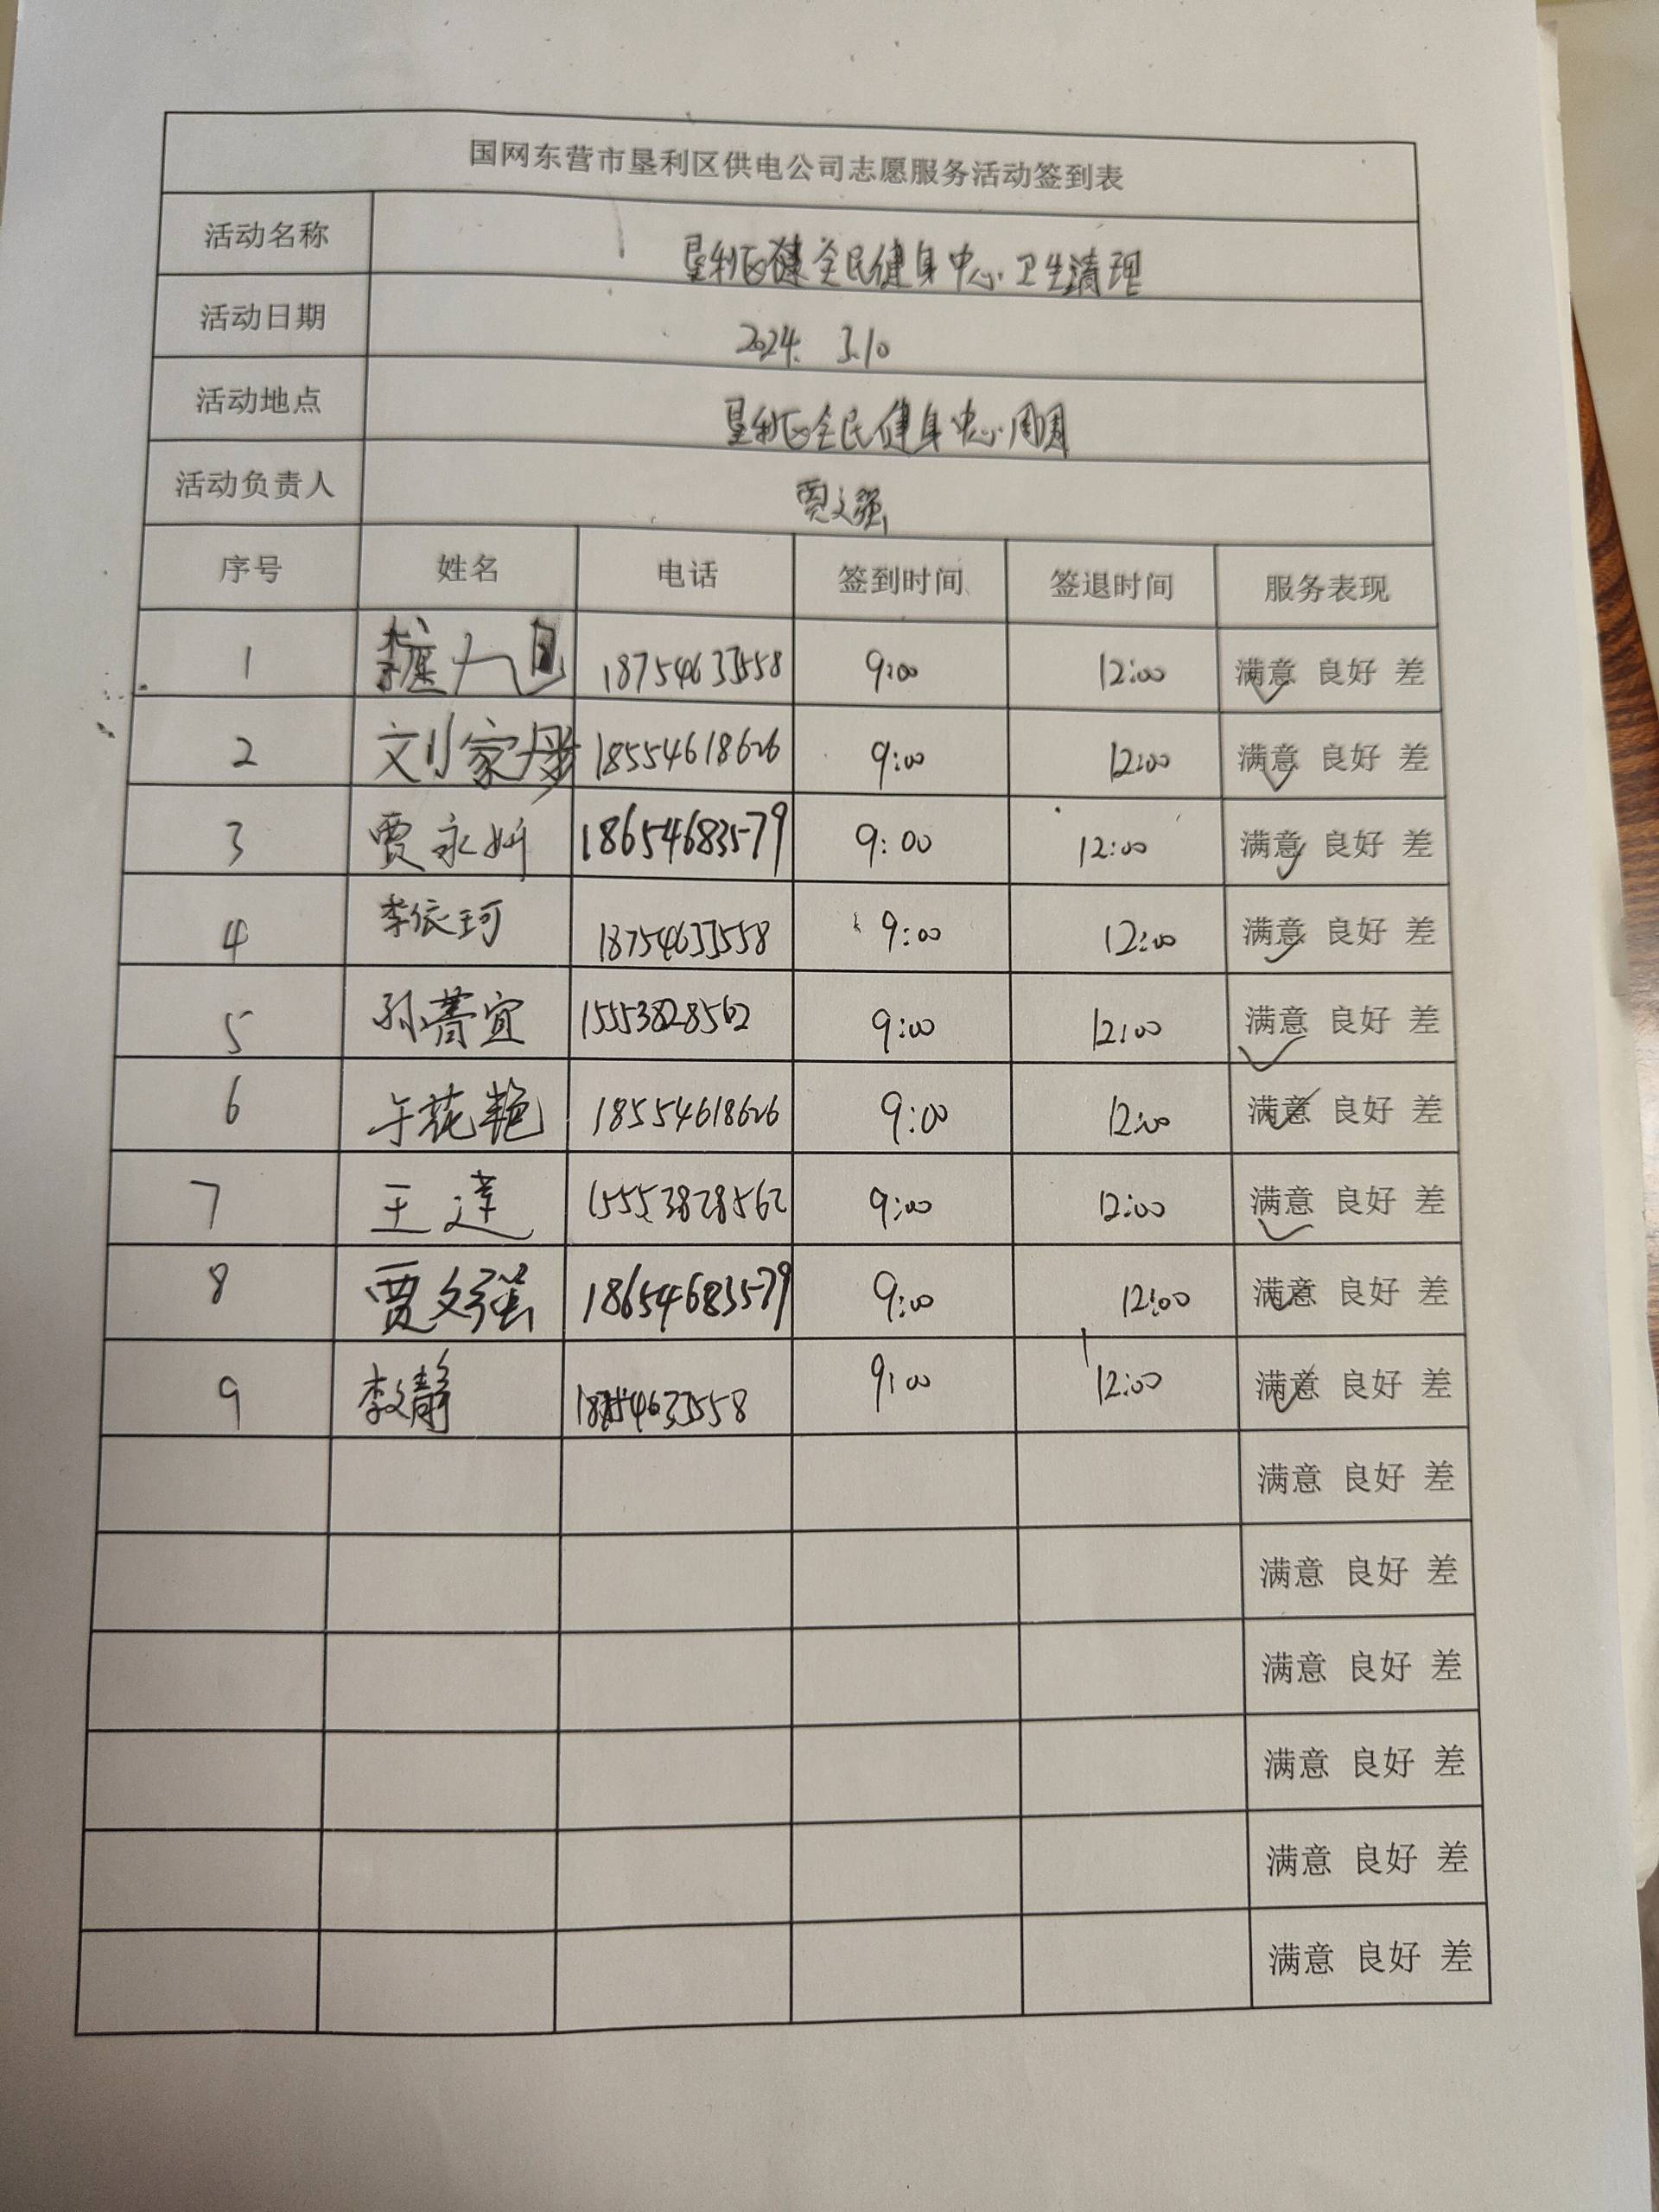 国网东营市垦利区供电公司志愿服务活动签到表
活动名称 垦利区健全民健身中心卫生清理
活动日期 2024. 3.10
活动地点 垦利区全民健身中心周围
活动负责人 贾文强
序号 姓名 电话 签到时间 签退时间 服务表现
1 18754633558 9:00 12:00 满意 良好 差
2 刘家彤 18554618626 9:00 12:00 满意 良好 差
3 贾永妍 18654683579 9:00 12:00 满意 良好 差
4 李依珂 18754633558 9:00 12:00 满意 良好 差
5 孙菁宜 15553828562 9:00 12:00 满意 良好 差
6 于花艳 18554618626 9:00 12:00 满意 良好 差
7 王达 15553828562 9:00 12:00 满意 良好 差
8 贾文强 18654683579 9:00 12:00 满意 良好 差
9 李文静 18754633558 9:00 12:00 满意 良好 差
满意 良好 差
满意 良好 差
满意 良好 差
满意 良好 差
满意 良好 差
满意 良好 差